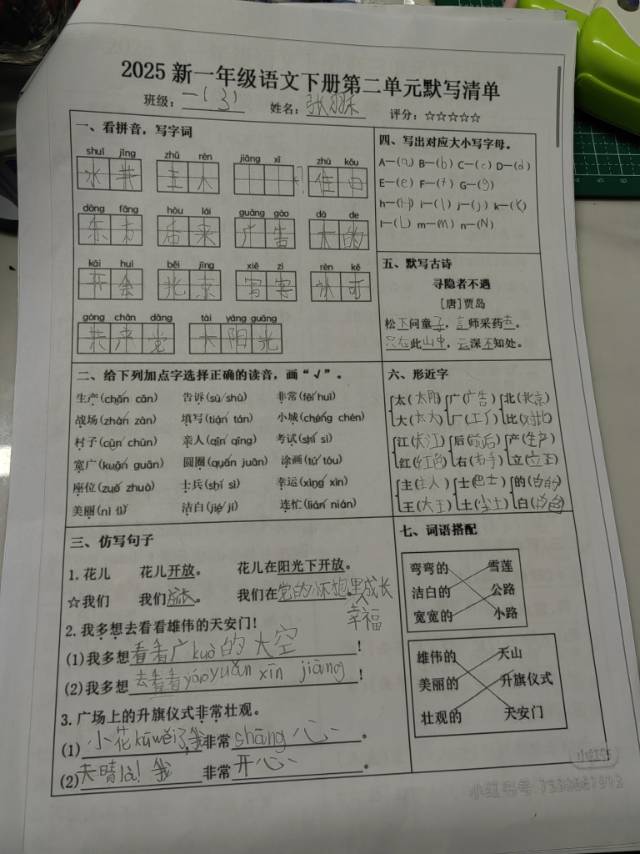 2025 新一年级语文下册第二单元默写清单
班级：一(3) 姓名：张 评分：☆☆☆☆☆
一、看拼音，写字词
shuǐ jīng zhǔ rén jiāng xī zhù kǒu
水 井 主 人
dōng fāng hòu lái guǎng gào dà de
东 方 后 来 广 告 大 的
kāi huì běi jīng xiě zì rèn kě
开 会 北 京 写 字 认 可
gòng chǎn dǎng tài yáng guāng
共 产 党 太 阳 光
二、给下列加点字选择正确的读音，画“√”。
生产(chǎn cǎn) 告诉(sù/shù) 非常(fēi huī)
战场(zhàn zàn) 填写(tián tán) 小城(chéng chén)
村子(cūn chūn) 亲人(qīn qīng) 考试(shì sì)
宽广(kuān guān) 圆圈(quān juān) 涂画(tú tóu)
座位(zuò zhuò) 士兵(shì sì) 幸运(xìng xìn)
美丽(nì lì) 洁白(jié jí) 连忙(lián nián)
三、仿写句子
1. 花儿 花儿开放。 花儿在阳光下开放。
☆我们 我们成长。 我们在党的怀抱里成长
幸福
2. 我多想去看看雄伟的天安门！
(1)我多想看看广kuò的天空！
(2)我多想去看看yáoyuǎn xīn jiāng！
3. 广场上的升旗仪式非常壮观。
(1)小花 我非常shāng心。
(2)天晴 我 非常开心。
四、写出对应大小写字母。
A—(a) B—(b) C—(c) D—(d)
E—(e) F—(f) G—(g)
h—(H) i—(l) j—(j) k—(K)
l—(L) m—(M) n—(N)
五、默写古诗
寻隐者不遇
[唐]贾岛
松下问童子，言师采药去。
只在此山中，云深不知处。
六、形近字
太(太阳) 广(广告) 北(北京)
大(大大) 厂(工厂) 比(对比)
江(长江) 后(前后) 产(生产)
红(红色) 右(右手) 立(立正)
主(主人) 士(巴士) 的(白的)
王(大王) 土(尘土) 白(白色)
七、词语搭配
弯弯的 雪莲
洁白的 公路
宽宽的 小路
雄伟的 天山
美丽的 升旗仪式
壮观的 天安门